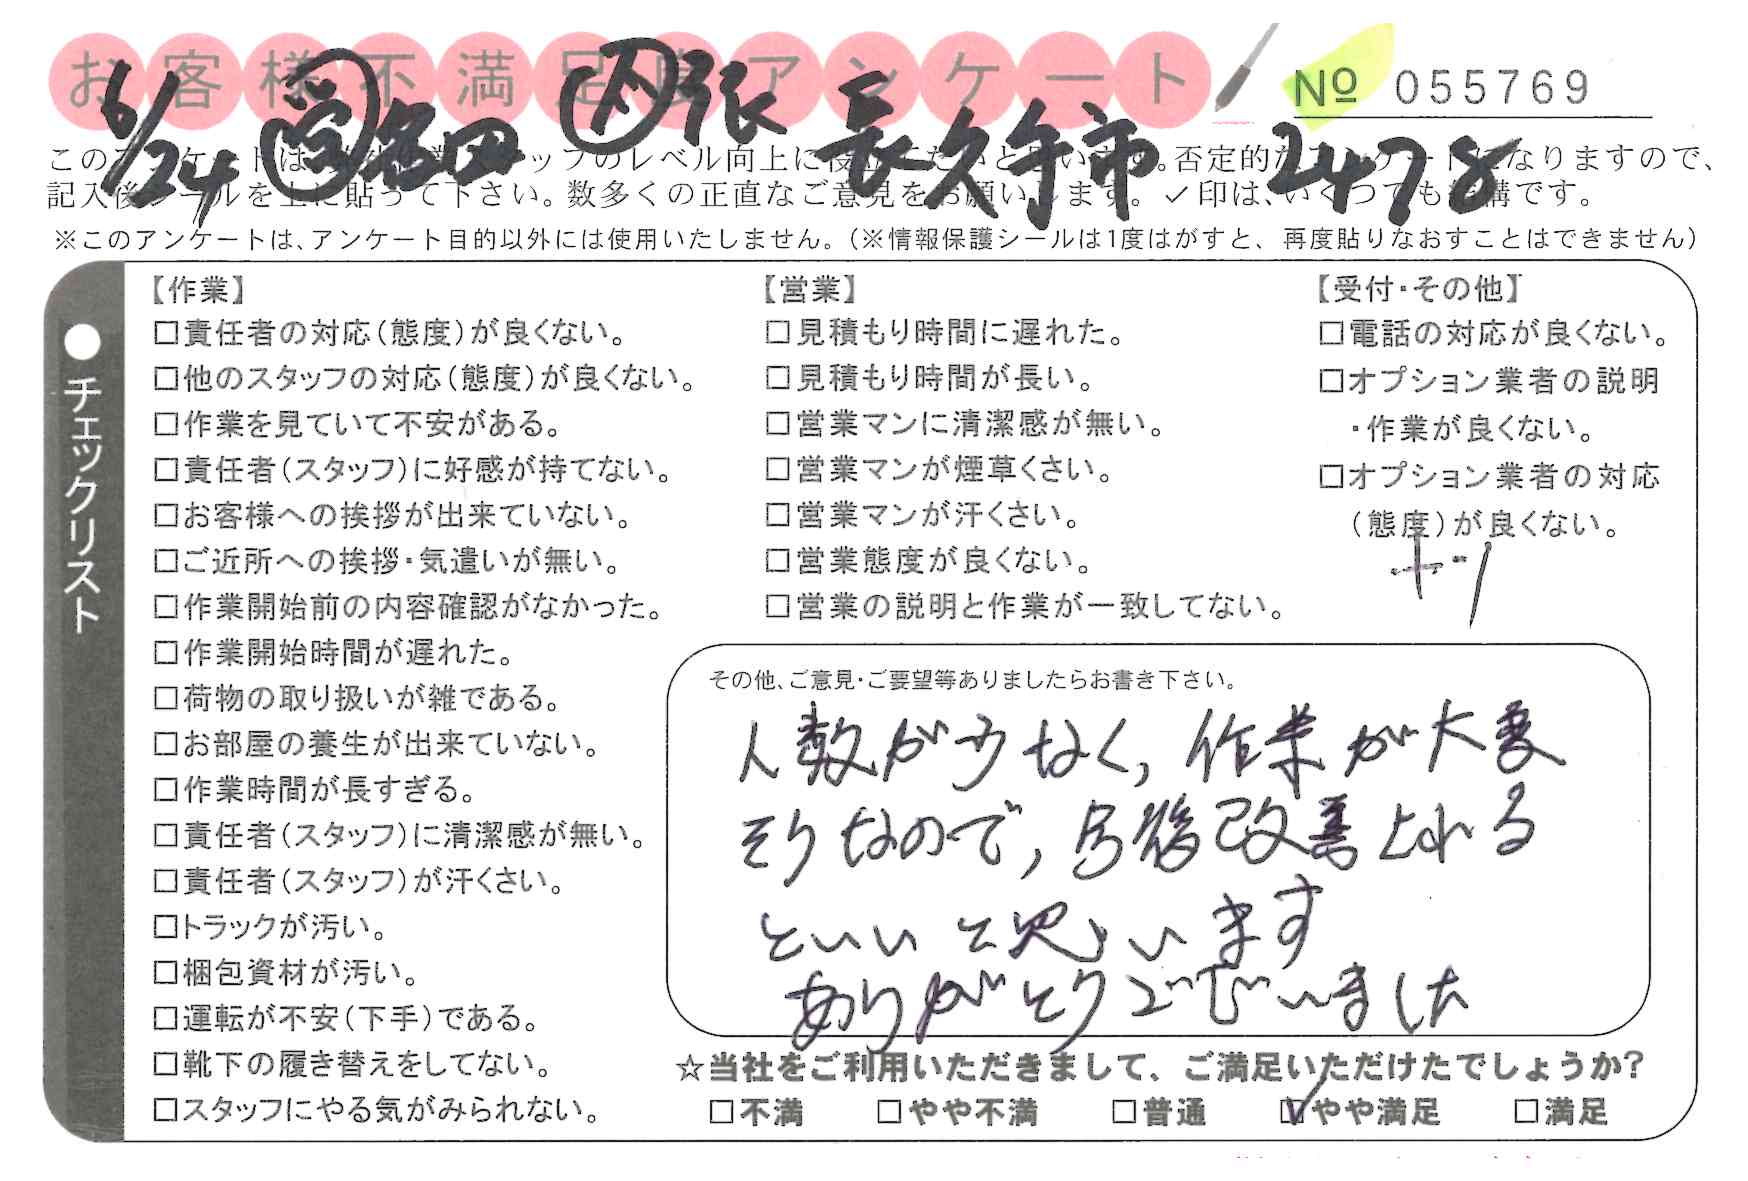 お客様不満足度アンケート
№ 055769
6/24 長久手市 2478
このアンケートは、 スタッフのレベル向上に役立てたいと思います。否定的なアンケートになりますので、
記入後シールを上に貼って下さい。数多くの正直なご意見をお願いします。✓印は、いくつでも結構です。
※このアンケートは、アンケート目的以外には使用いたしません。(※情報保護シールは1度はがすと、再度貼りなおすことはできません)
●チェックリスト
【作業】
□責任者の対応(態度)が良くない。
□他のスタッフの対応(態度)が良くない。
□作業を見ていて不安がある。
□責任者(スタッフ)に好感が持てない。
□お客様への挨拶が出来ていない。
□ご近所への挨拶・気遣いが無い。
□作業開始前の内容確認がなかった。
□作業開始時間が遅れた。
□荷物の取り扱いが雑である。
□お部屋の養生が出来ていない。
□作業時間が長すぎる。
□責任者(スタッフ)に清潔感が無い。
□責任者(スタッフ)が汗くさい。
□トラックが汚い。
□梱包資材が汚い。
□運転が不安(下手)である。
□靴下の履き替えをしてない。
□スタッフにやる気がみられない。
【営業】
□見積もり時間に遅れた。
□見積もり時間が長い。
□営業マンに清潔感が無い。
□営業マンが煙草くさい。
□営業マンが汗くさい。
□営業態度が良くない。
□営業の説明と作業が一致してない。
【受付・その他】
□電話の対応が良くない。
□オプション業者の説明
・作業が良くない。
□オプション業者の対応
(態度)が良くない。
その他、ご意見・ご要望等ありましたらお書き下さい。
人数が少なく、作業が大変
そうなので、今後改善される
といいと思います
ありがとうございました
☆当社をご利用いただきまして、ご満足いただけたでしょうか?
□不満 □やや不満 □普通 ☑やや満足 □満足